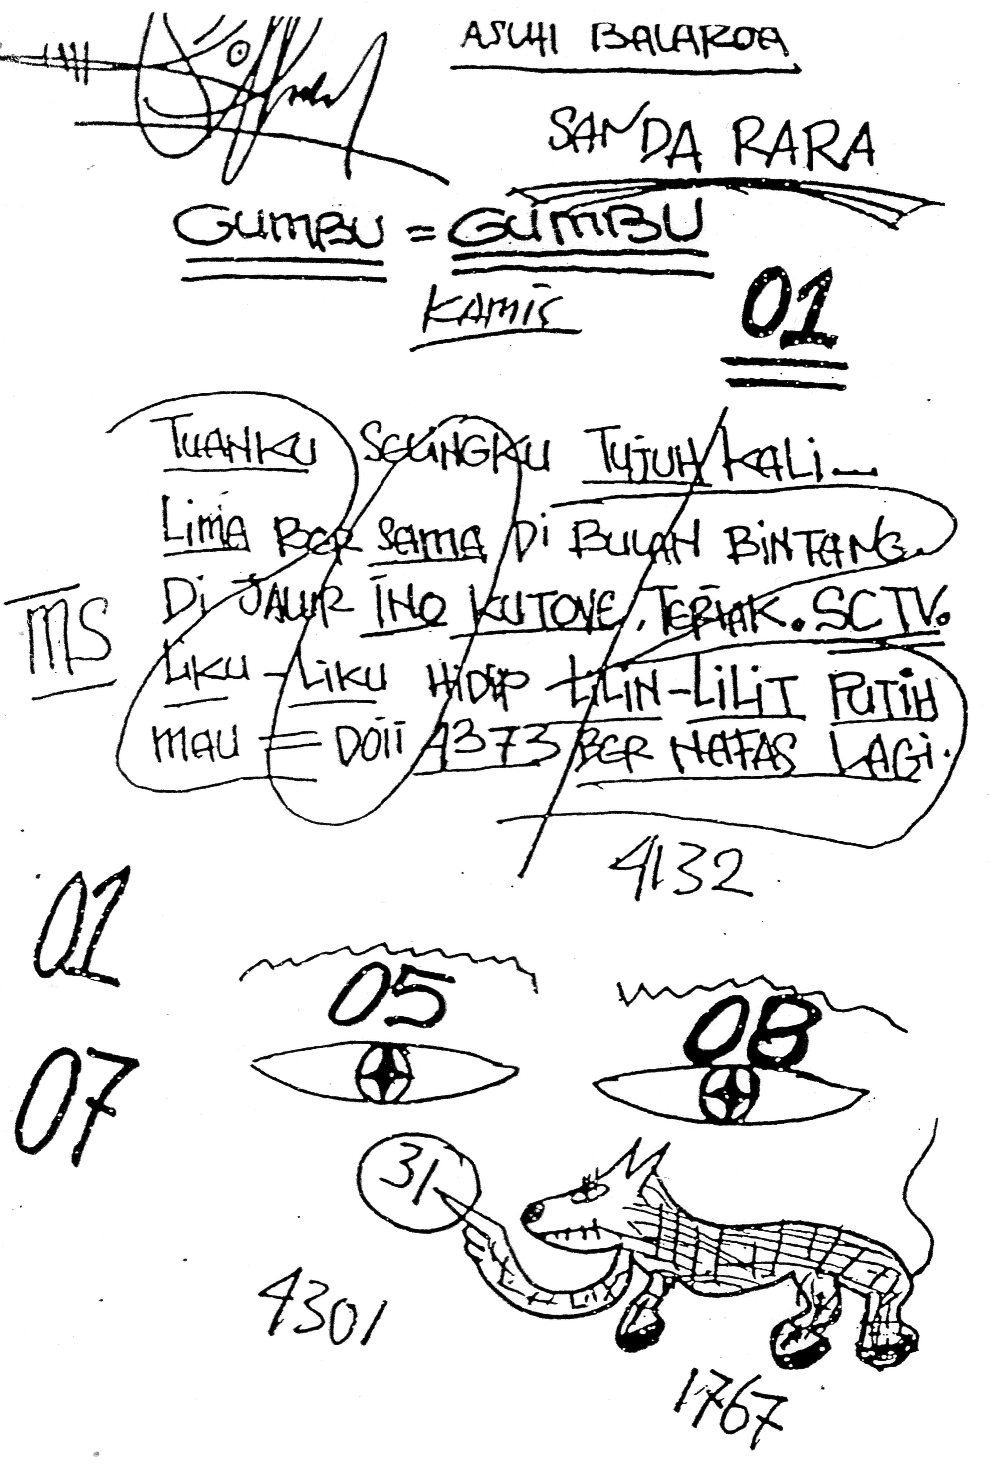 ASUHI BALAROA
SANDA RARA
GUMBU = GUMBU
KAMIS
01
TUANKU SELINGKU TUJUH KALI
LIMA BER SAMA DI BULAN BINTANG
DI JALUR INO KUTOVE, TERIAK. SCTV.
MS
LIKU-LIKU HIDUP LILIN-LILIT PUTIH
MAU = DOII 1373 BER NAFAS LAGI.
4132
01
05
08
07
31
4301
1767